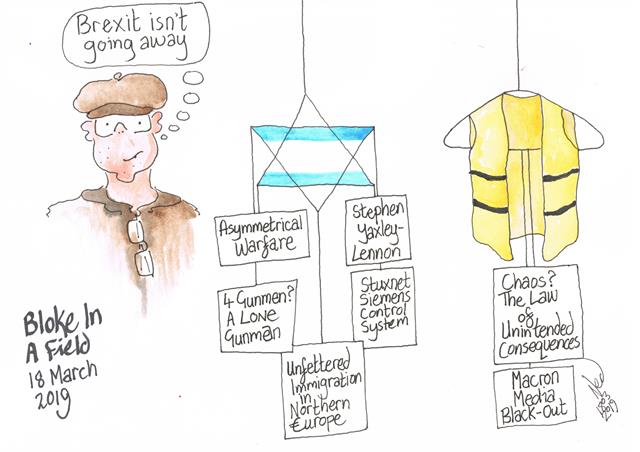 Brexit isn't
going away
Bloke In
A Field
18 March
2019
Asymmetrical
Warfare
4 Gunmen?
A Lone
Gunman
Unfettered
Immigration
in
Northern
Europe
Stephen
Yaxley-
Lennon
Stuxnet
Siemens
Control
System
Chaos?
The Law
of
Unintended
Consequences
Macron
Media
Black-Out
2019